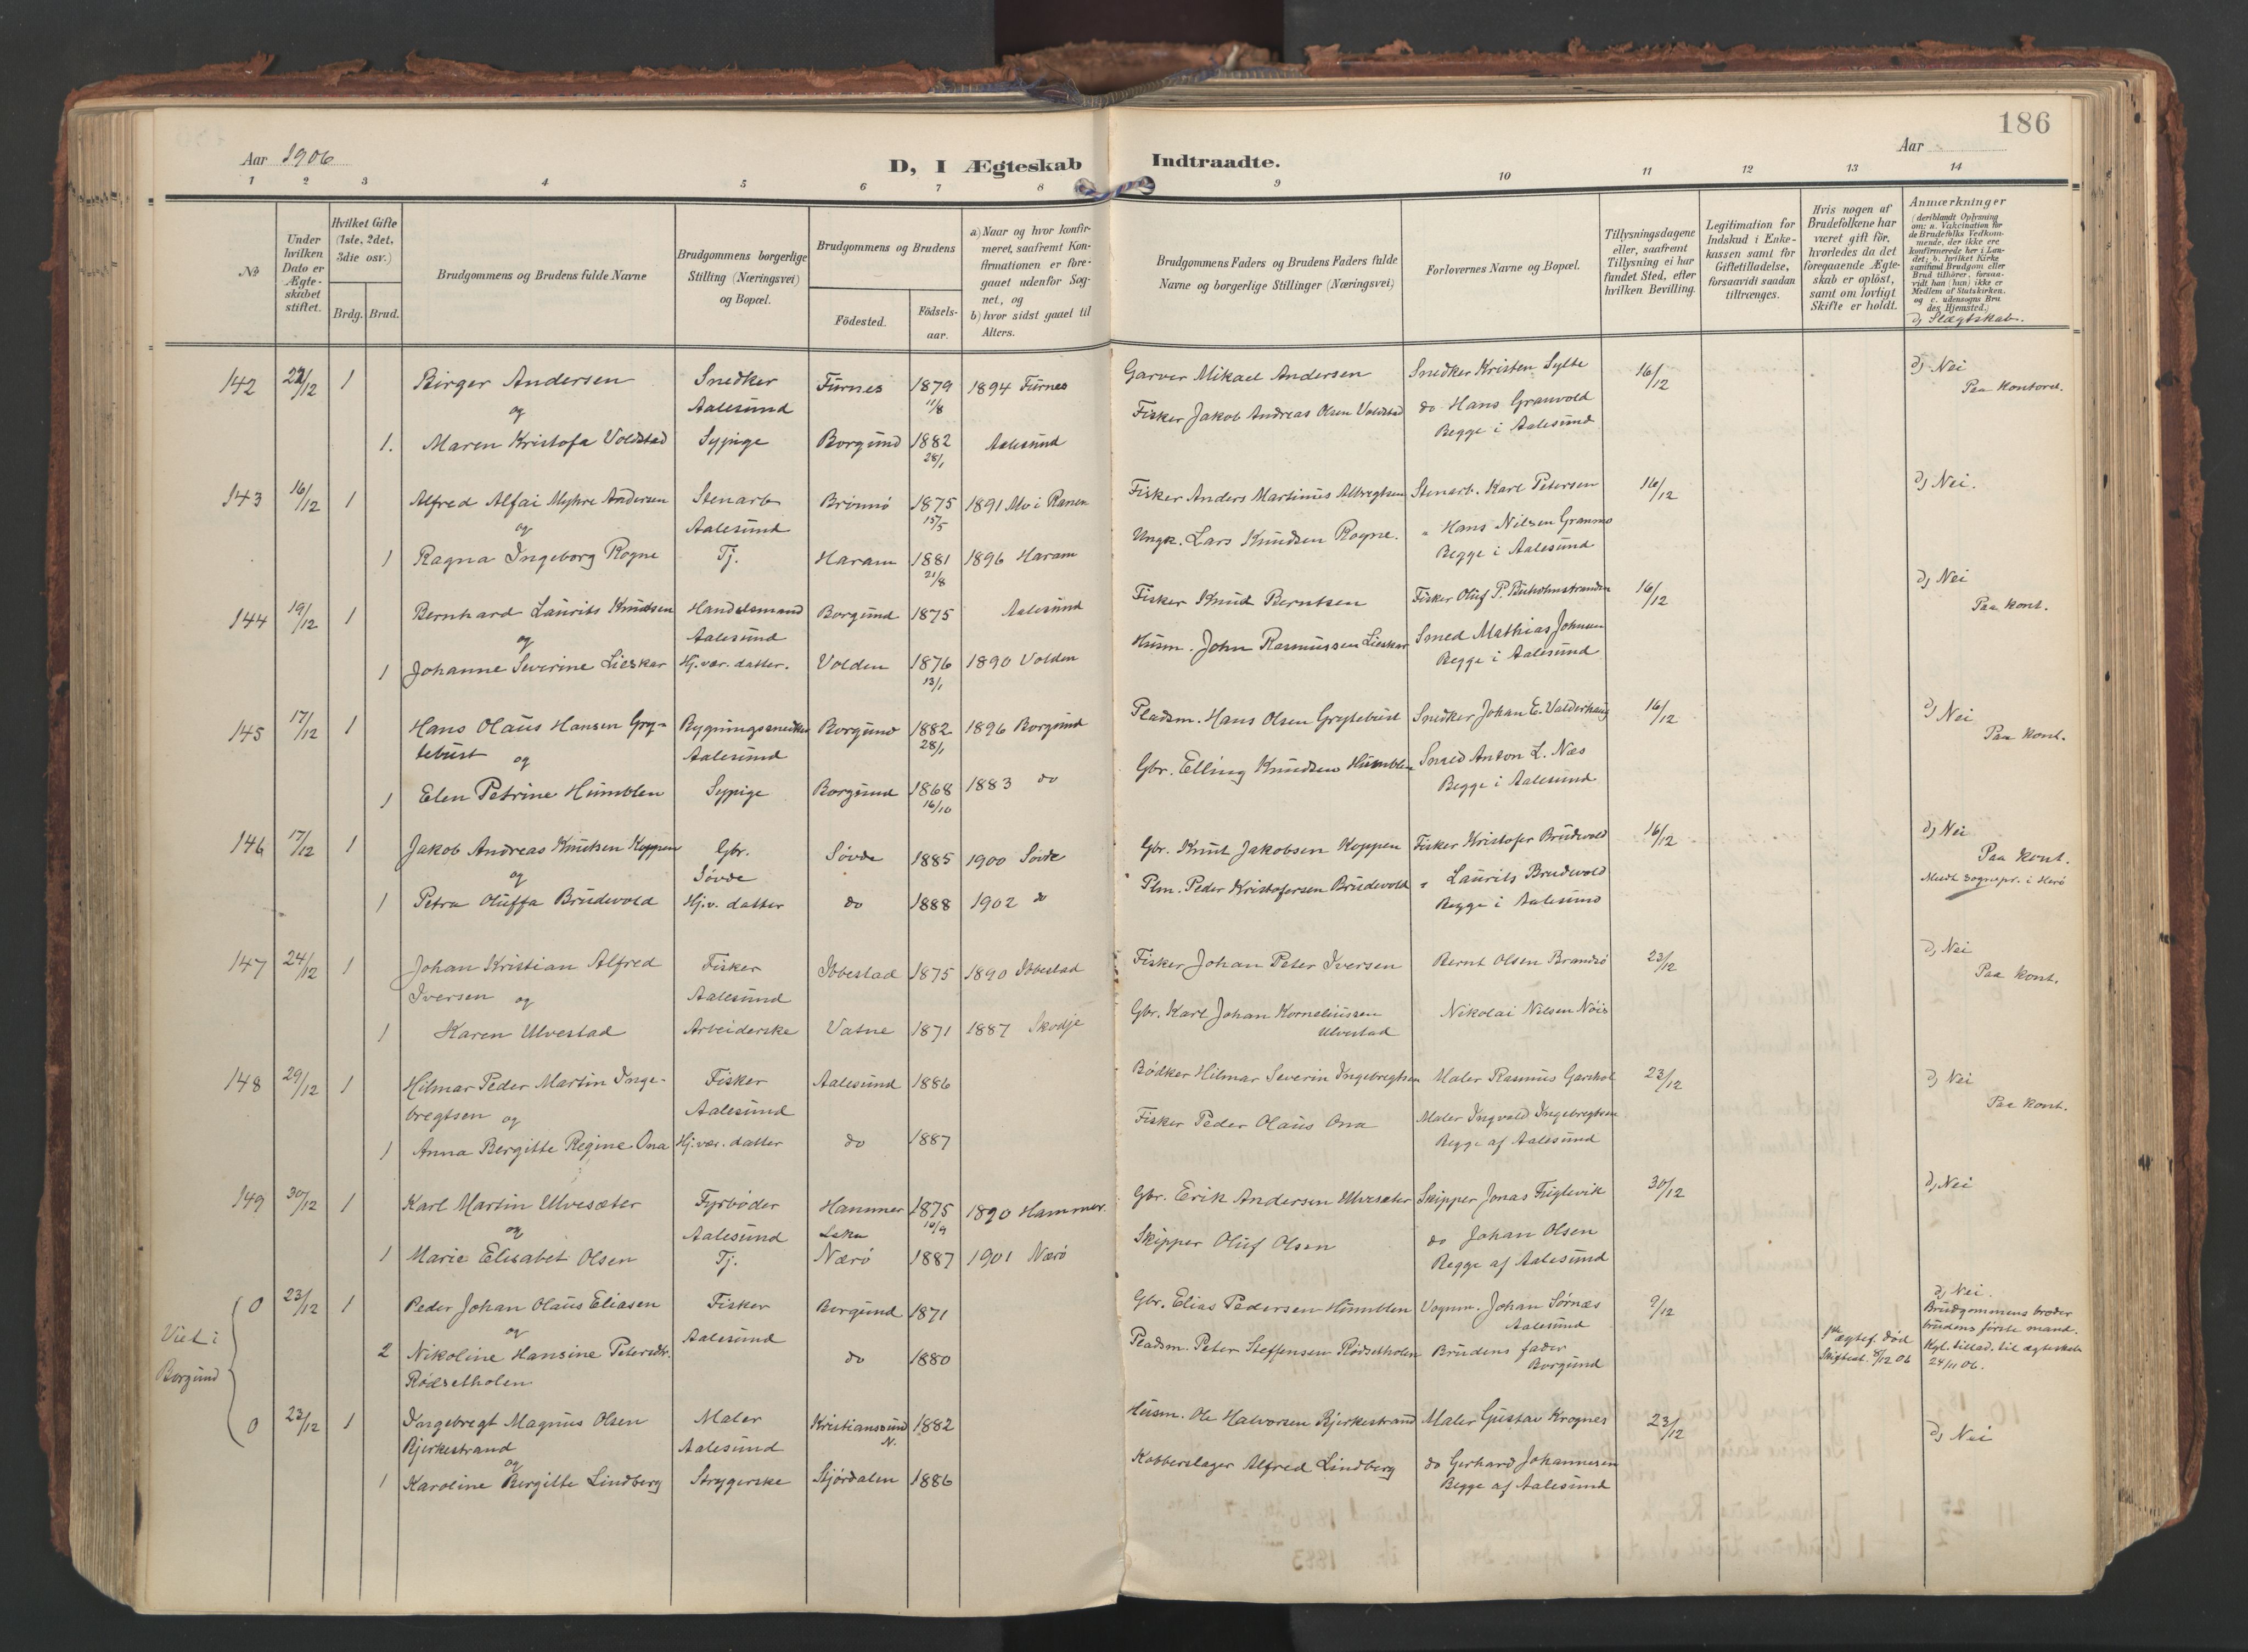 186
Aar 1906
D, I Ægteskab Indtraadte.
Aar
1 2 3 4 5 6 7 8 9 10 11 12 13 14
No
Under hvilken Dato er Ægteskabet stiftet.
Hvilket Gifte (1ste, 2det, 3die osv.)
Brdg. Brud.
Brudgommens og Brudens fulde Navne
Brudgommens borgerlige Stilling (Næringsvei) og Bopæl.
Brudgommens og Brudens
Födested.
Födsels-aar.
a) Naar og hvor konfirmeret, saafremt Konfirmationen er foregaaet udenfor Sognet, og
b) hvor sidst gaaet til Alters.
Brudgommens Faders og Brudens Faders fulde Navne og borgerlige Stillinger (Næringsvei)
Forlovernes Navne og Bopæl.
Tillysningsdagene eller, saafremt Tillysning ei har fundet Sted, efter hvilken Bevilling.
Legitimation for Indskud i Enkekassen samt for Giftetilladelse, forsaavidt saadan tiltrænges.
Hvis nogen af Brudefolkene har været gift för, hvorledes da det foregaaende Ægteskab er oplöst, samt om lovligt Skifte er holdt.
Anmærkninger
(deriblandt Oplysning om: a. Vakcination for de Brudefolks Vedkommende, der ikke ere konfirmerede her i Landet; b. hvilket Kirkesamfund Brudgom eller Brud tilhörer, forsaavidt han (hun) ikke er Medlem af Statskirken. og c. udensogns Brudes Hjemsted.)
d) Slægtskab.
142 22/12 1 Birger Andersen Snedker Furnes 1879 1894 Furnes Garver Mikael Andersen Snedker Kristen Sylte 16/12 d) Nei
og Aalesund 11/8 Fisker Jakob Andreas Olsen Voldstad do Hans Granvold Paa kontoret.
1. Maren Kristofa Voldstad Sypige Borgund 1882 Aalesund Begge i Aalesund
28/1
143 16/12 1 Alfred Alfai Myhre Andersen Stenarb Brönnö 1875 1891 Mo i Ranen Fisker Anders Martinus Albregtsen Stenarb. Karl Petersen 16/12 d) Nei.
og Aalesund 15/5 Ungk. Lars Knudsen Rogne. " Hans Nilsen Granmo
1 Ragna Ingeborg Rogne Tj. Haram 1881 1896 Haram Begge i Aalesund
21/8
144 19/12 1 Bernhard Laurits Knudsen Handelsmand Borgund 1875 Aalesund Fisker Knud Berntsen Fisker Oluf P. Buholmstranden 16/12 d) Nei
og Aalesund Husm. John Rasmussen Lieskar Smed Mathias Johnsen Paa kont.
1 Johanne Severine Lieskar Hj. vær. datter. Volden 1876 1890 Volden Begge i Aalesund
13/1
145 17/12 1 Hans Olaus Hansen Gry- Bygningssnedker Borgund 1882 1896 Borgund Pladsm. Hans Olsen Grytebust Snedker Johan E. Valderhaug 16/12 d) Nei
tebust og Aalesund 28/1 Gbr. Elling Knudsen Humblen Smed Anton L. Næs Paa kont.
1 Elen Petrine Humblen Sypige Borgund 1868 1883 do Begge i Aalesund
16/10
146 17/12 1 Jakob Andreas Knutsen Koppen Gbr. Søvde 1885 1900 Søvde Gbr. Knut Jakobsen Koppen Fisker Kristofer Brudevold 16/12 d) Nei
og Søvde Plm. Peder Kristofersen Brudevold " Laurits Brudevold Paa kont.
1 Petra Oluffa Brudevold Hj.v. datter do 1888 1902 do Begge i Aalesund Medt sognepr. i Herö
147 24/12 1 Johan Kristian Alfred Fisker Ibbestad 1875 1890 Ibbestad Fisker Johan Peter Iversen Bernt Olsen Brandsö 23/12 d) Nei
Iversen og Aalesund Gbr. Karl Johan Korneliussen Paa kont.
1 Karen Ulvestad Arbeiderske Vatne 1871 1887 Skodje Ulvestad Nikolai Nilsen Nöis
148 29/12 1 Hilmar Peder Martin Inge- Fisker Aalesund 1886 Bödker Hilmar Severin Ingebregtsen Maler Rasmus Garshol 23/12 d) Nei
bregtsen og Aalesund Fisker Peder Olaus Ona Maler Ingvald Ingebregtsen Paa kont.
1 Anna Bergitte Regine Ona Hj. vær. datter do 1887 Begge af Aalesund
149 30/12 1 Karl Martin Ulvesæter Fyrbøder Hammer 1875 1890 Hammer. Gbr. Erik Andersen Ulvesæter Skipper Jonas Fuglevik 30/12 d) Nei
og Aalesund Leka 10/9 Skipper Oluf Olsen do Johan Olsen
1 Marie Elisabet Olsen Tj. Nærö 1887 1901 Nærö Begge af Aalesund
Viet i Borgund
0 23/12 1 Peder Johan Olaus Eliasen Fisker Borgund 1871 Gbr. Elias Pedersen Humblen Vognm. Johan Sørnæs 9/12 d) Nei.
og Aalesund Aalesund Brudgommens broder brudens første mand.
2 Nikoline Hansine Petersdtr. do 1880 Pladsm. Peter Steffensen Rödsetholen Brudens fader ægtef. død Kgl. tillad. til ægteskab
Rödsetholen Borgund 8/12 06 24/11 06.
0 23/12 1 Ingebregt Magnus Olsen Maler Kristianssund 1882 Husm. Ole Halvorsen Bjerkestrand Maler Gustav Krognes 23/12 d) Nei
Bjerkestrand Aalesund N.
og Kobberslager Alfred Lindberg do Gerhard Johannesen
1 Karoline Bergitte Lindberg Strygerske Stjördalen 1886 Begge af Aalesund